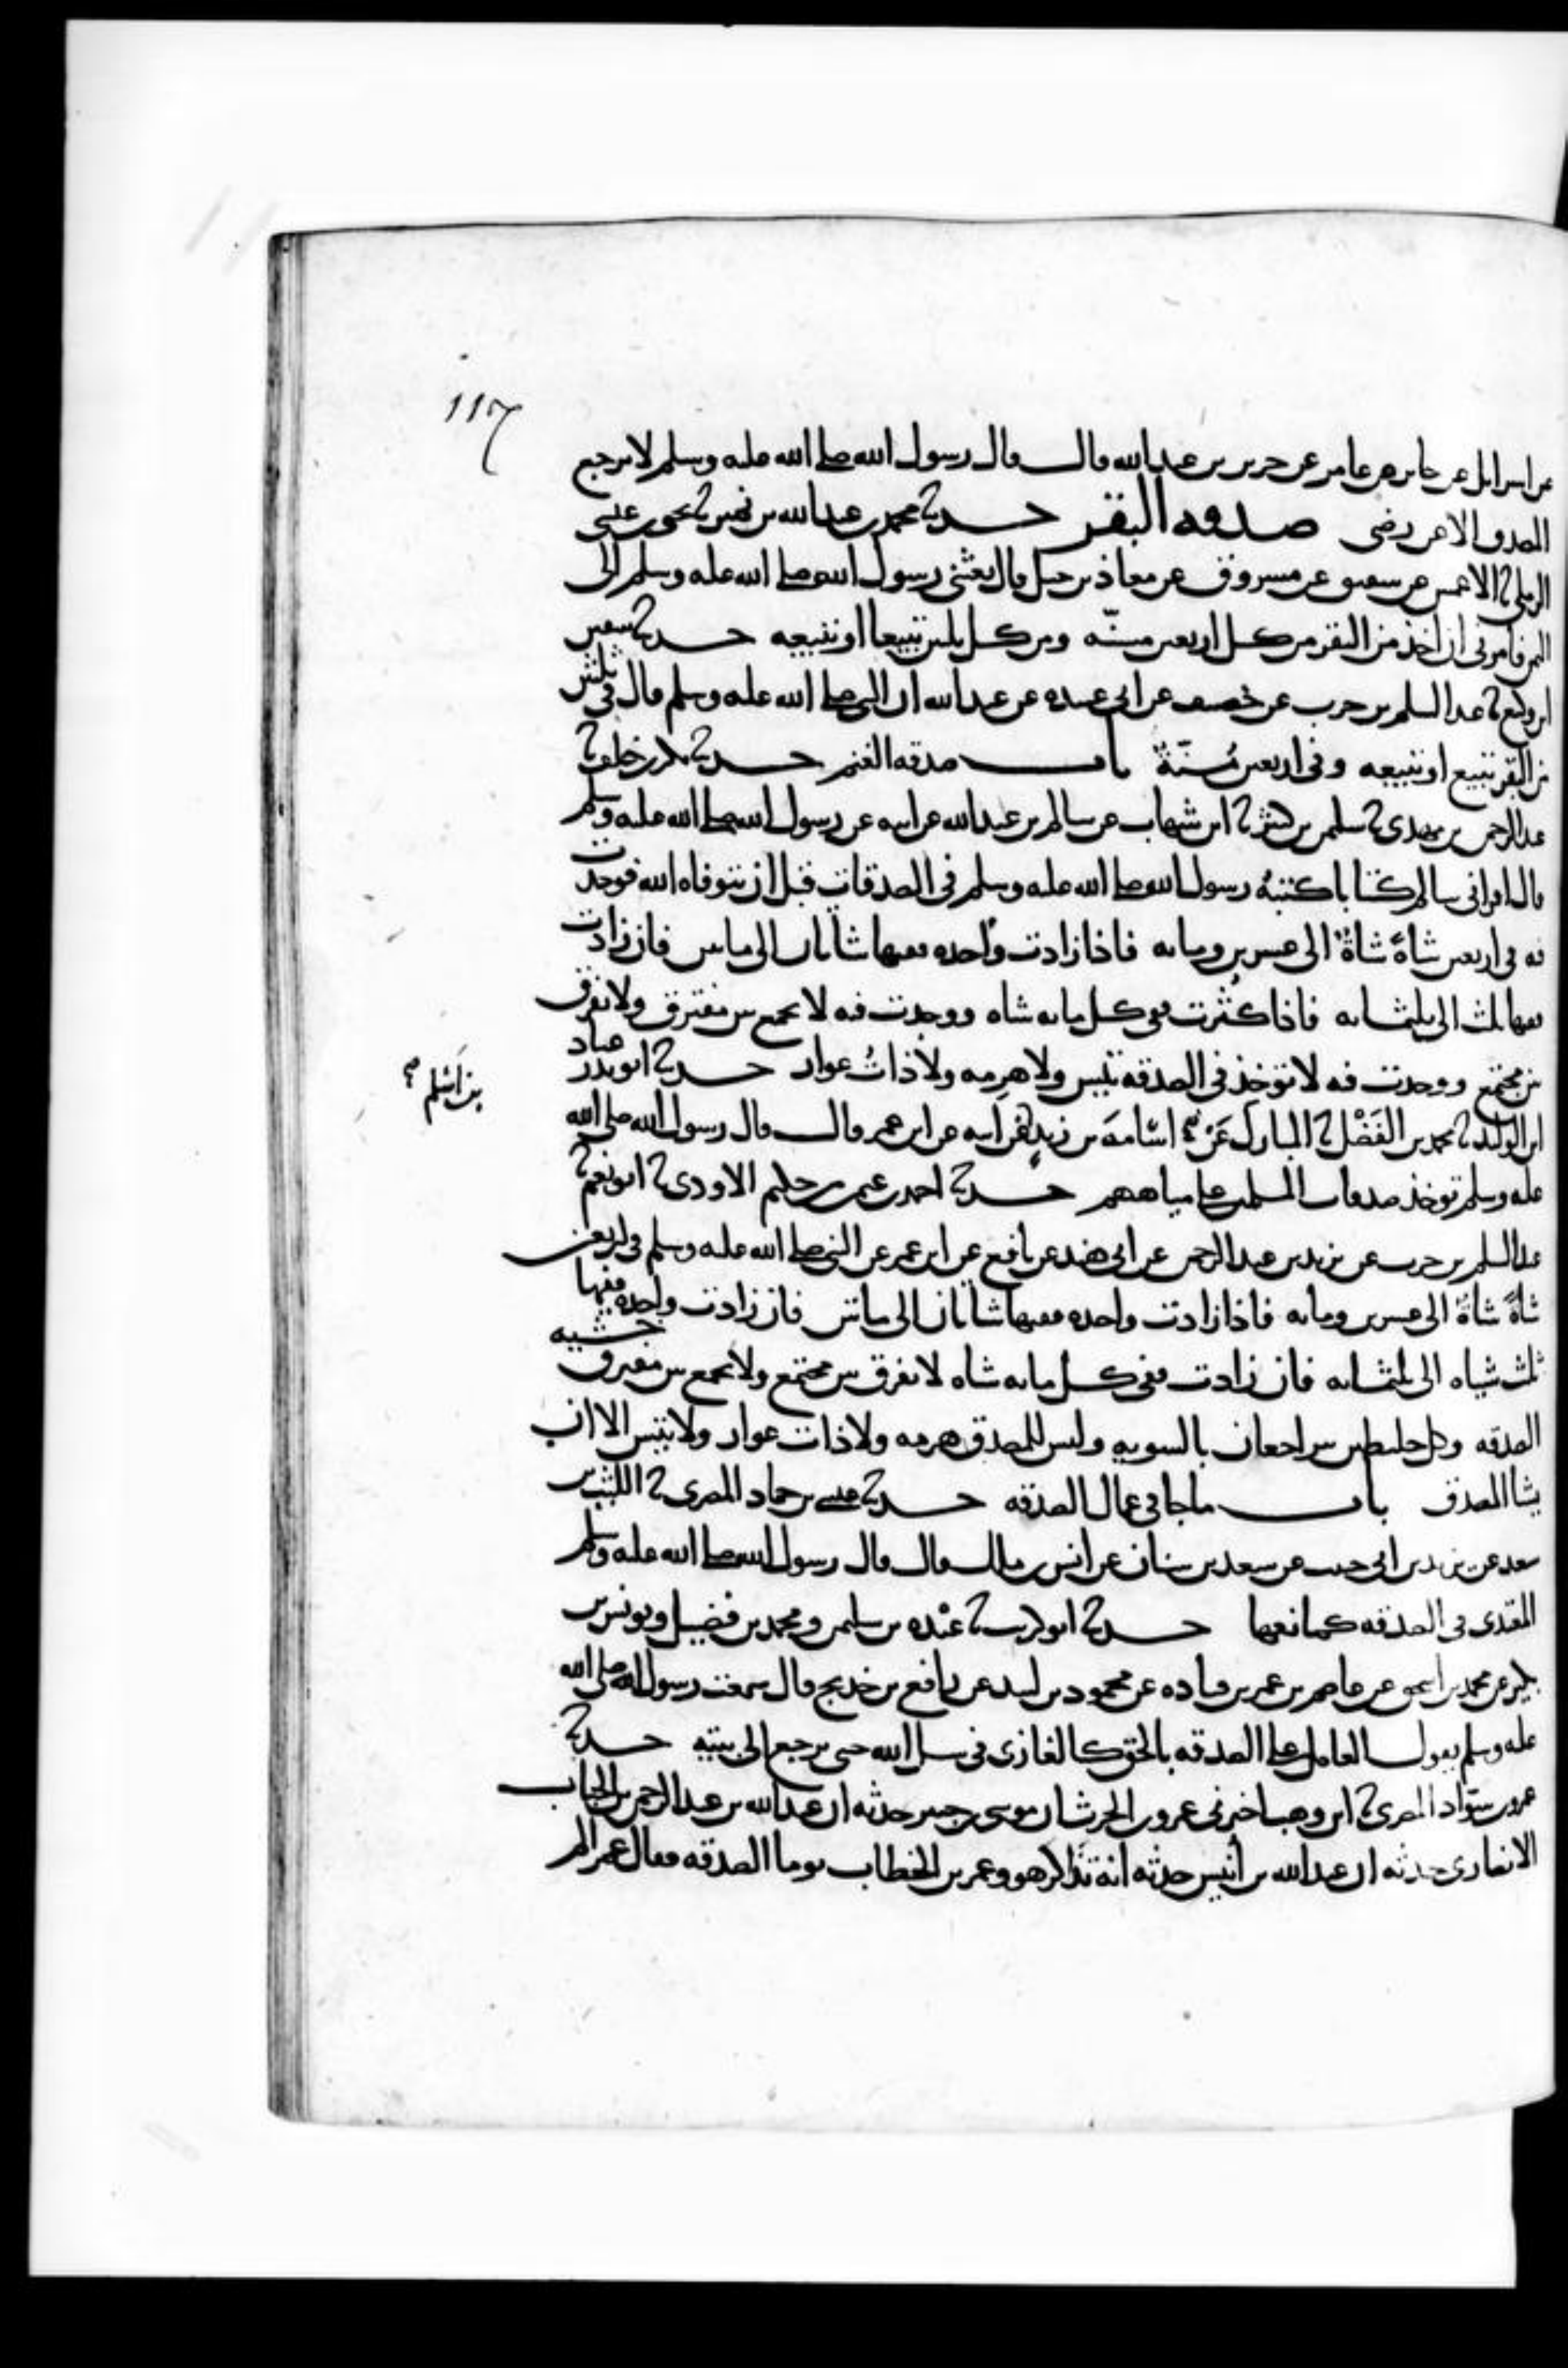 117
عن اسرائيل عن جابر عن عامر عن جرير بن عبد الله قال قال رسول الله صلى الله عليه وسلم لا يرجع
المصدق الا عن رضى صدقه البقر حدثنا محمد بن عبد الله بن نمير ثنا يحيى بن عيسى
الرملي ثنا الاعمش عن شقيق عن مسروق عن معاذ بن جبل قال بعثني رسول الله صلى الله عليه وسلم الى
اليمن فامرني ان اخذ من البقر من كل اربعين مسنّه ومن كل ثلثين تبيعا او تبيعه حدثنا سفين
ابن وكيع ثنا عبد السلم بن حرب عن خصيف عن ابي عبيده عن عبد الله ان النبي صلى الله عليه وسلم قال في ثلثين
من البقر تبيع او تبيعه وفي اربعين مُسِنّةٌ باب صدقه الغنم حدثنا بكر بن خلف ثنا
عبد الرحمن بن مهدي ثنا سليمن بن كثير ثنا ابن شهاب عن سالم بن عبد الله عن ابيه عن رسول الله صلى الله عليه وسلم
قال اقراني سالم كتابا كتبهُ رسول الله صلى الله عليه وسلم في الصدقات قبل ان يتوفاه الله فوجدت
فيه في اربعين شاةً شاةٌ الى عشرين ومايه فاذا زادت واحده ففيها شاتان الى مايتين فان زادت
ففيها ثلث الى ثلثمايه فاذا كثُرت ففي كل مايه شاه ووجدت فيه لا يجمع بين مفترق ولا يفرق
بين مجتمع ووجدت فيه لا توخذ في الصدقه تيس ولا هرِمه ولا ذاتُ عوار حدثنا ابو بدر عباد
ابن الوليد ثنا محمد بن الفَضْل ثنا ابن المبارك عَن اسَامهَ بن زيد عن ابيه عن ابن عمر قال قال رسول الله صلى الله
بن اَسْلم صح
عليه وسلم توخذ صدقات المسلمين على مياههم حدثنا احمد بن عثمن بن حكيم الاودي ثنا ابو نعيم ثنا
عبد السلم بن حرب عن يزيد بن عبد الرحمن عن ابي هند عن نافع عن ابن عمر عن النبي صلى الله عليه وسلم في اربعين
شاةً شاةٌ الى عشرين ومايه فاذا زادت واحده ففيها شاتان الى مايتين فان زادت واحده ففيها
ثلث شياه الى ثلثمايه فان زادت ففي كل مايه شاه لا يفرق بين مجتمع ولا يجمع بين مفترق خشيه
الصدقه وكل خليطين يتراجعان بالسويه وليس للمصدق هرمه ولا ذات عوار ولا تيس الا ان
يشا المصدق باب ما جا في عمال الصدقه حدثنا عيسى بن حماد المصري ثنا الليث بن
سعد عن يزيد بن ابي حبيب عن سعد بن سنان عن انس بن مالك قال قال رسول الله صلى الله عليه وسلم
المعتدي في الصدقه كمانعها حدثنا ابو كريب ثنا عبْده بن سليمن ومحمد بن فضيل ويونس بن
بكير عن محمد بن اسحق عن عاصم بن عمر بن قتاده عن محمود بن لبيد عن رافع بن خديج قال سمعت رسول الله صلى الله
عليه وسلم يقول العامل على الصدقه بالحق كالغازي في سبيل الله حتى يرجع الى بيته حدثنا
عمرو بن سوّاد المصري ثنا ابن وهب اخبرني عمرو بن الحرث ان موسى بن جبير حدثه ان عبد الله بن عبد الرحمن بن الحباب
الانصاري حدثه ان عبد الله بن أنيس حدثه انه تذاكر هو وعمر بن الخطاب يوما الصدقه فقال عمر الم